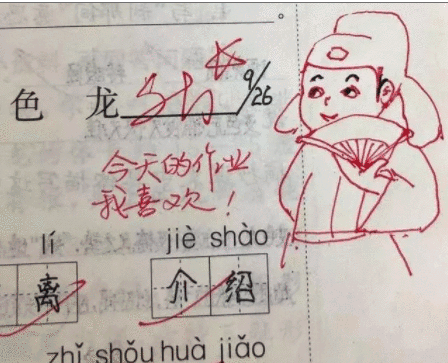 。
色 龙
9/26
今天的作业
我喜欢！
lí jiè shào
离 介绍
zhǐ shǒu huà jiǎo